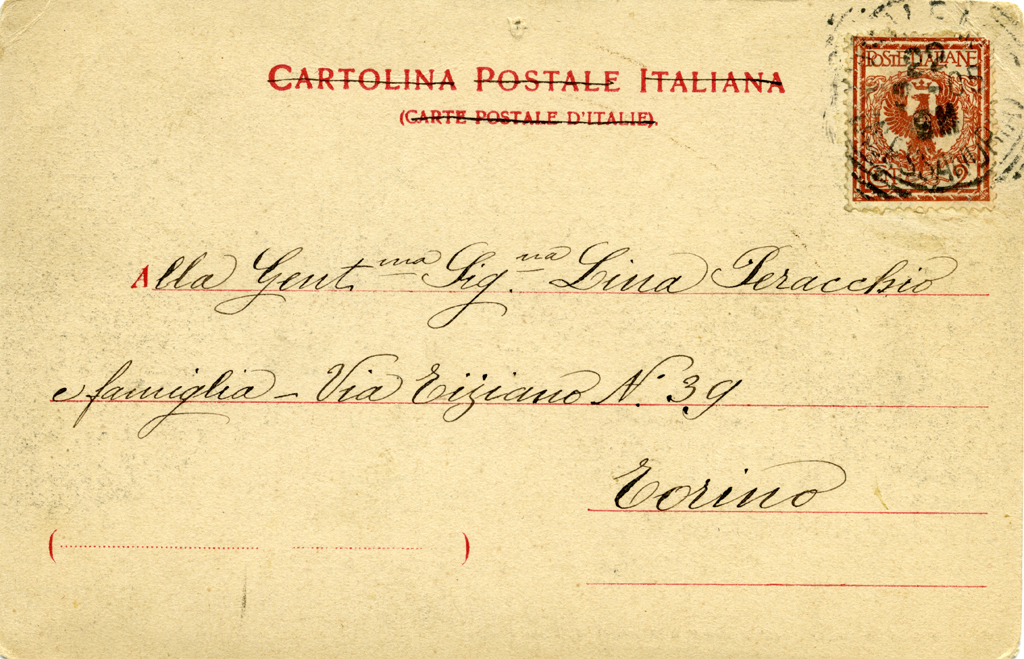 CARTOLINA POSTALE ITALIANA
(CARTE POSTALE D'ITALIE).
POSTE ITALIANE
22
9M
Alla Gent.ma Sig.na Lina Peracchio
e famiglia – Via Tiziano N. 39
Torino